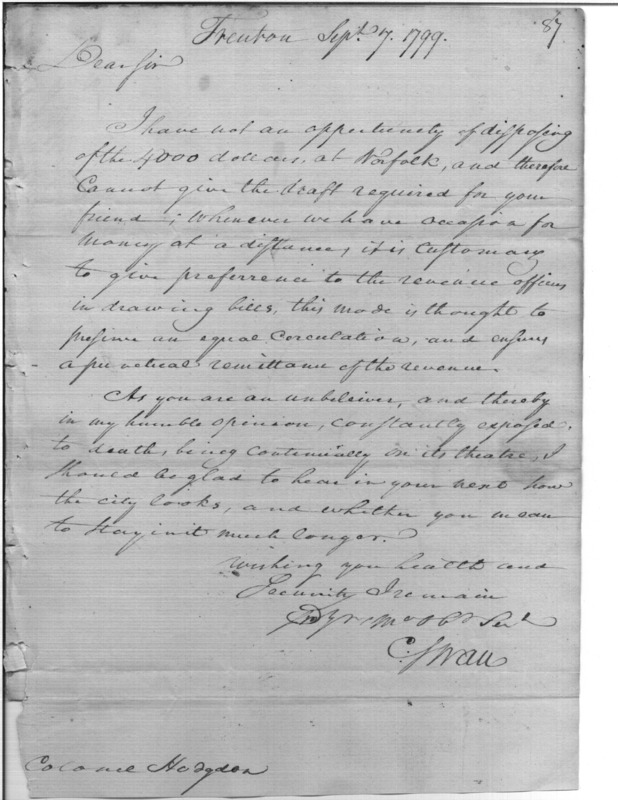 87
Trenton Sept. 7. 1799.
Dear Sir
I have not an opportunity of disposing
of the 4000 dollars, at Norfolk, and therefore
Cannot give the draft required for your
friend; Whenever we have occasion for
Money at a distance, it is Customary
to give preferrence to the revenue officers
in drawing bills, this mode is thought to
preserve an equal Corculation, and ensures
a punctual remittance of the revenue.
As you are an unbeleiver, and thereby
in my humble opinion, constantly exposed
to death, being continually on its theatre, I
should be glad to hear in your next how
the city looks, and whether you mean
to stay in it much longer.
Wishing you health and
Security I remain
Dr Sir yr Mo Ob Servt
C. Swan
Colonel Hodgdon